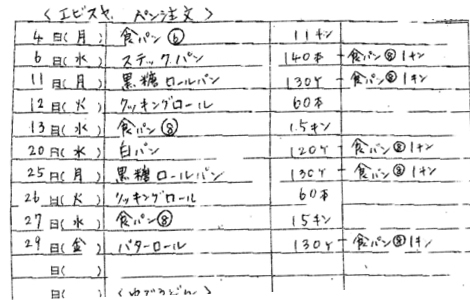 〈エビスヤ パン注文〉
4日(月) 食パン⑥ 11キン
6日(水) スティックパン 140本 -食パン⑧1キン
11日(月) 黒糖ロールパン 130ケ -食パン⑧1キン
12日(火) クッキングロール 60本
13日(水) 食パン⑧ 15キン
20日(水) 白パン 120ケ -食パン⑧1キン
25日(月) 黒糖ロールパン 130ケ -食パン⑧1キン
26日(火) クッキングロール 60本
27日(水) 食パン⑧ 15キン
29日(金) バターロール 130ケ -食パン⑧1キン
日( )
日( )